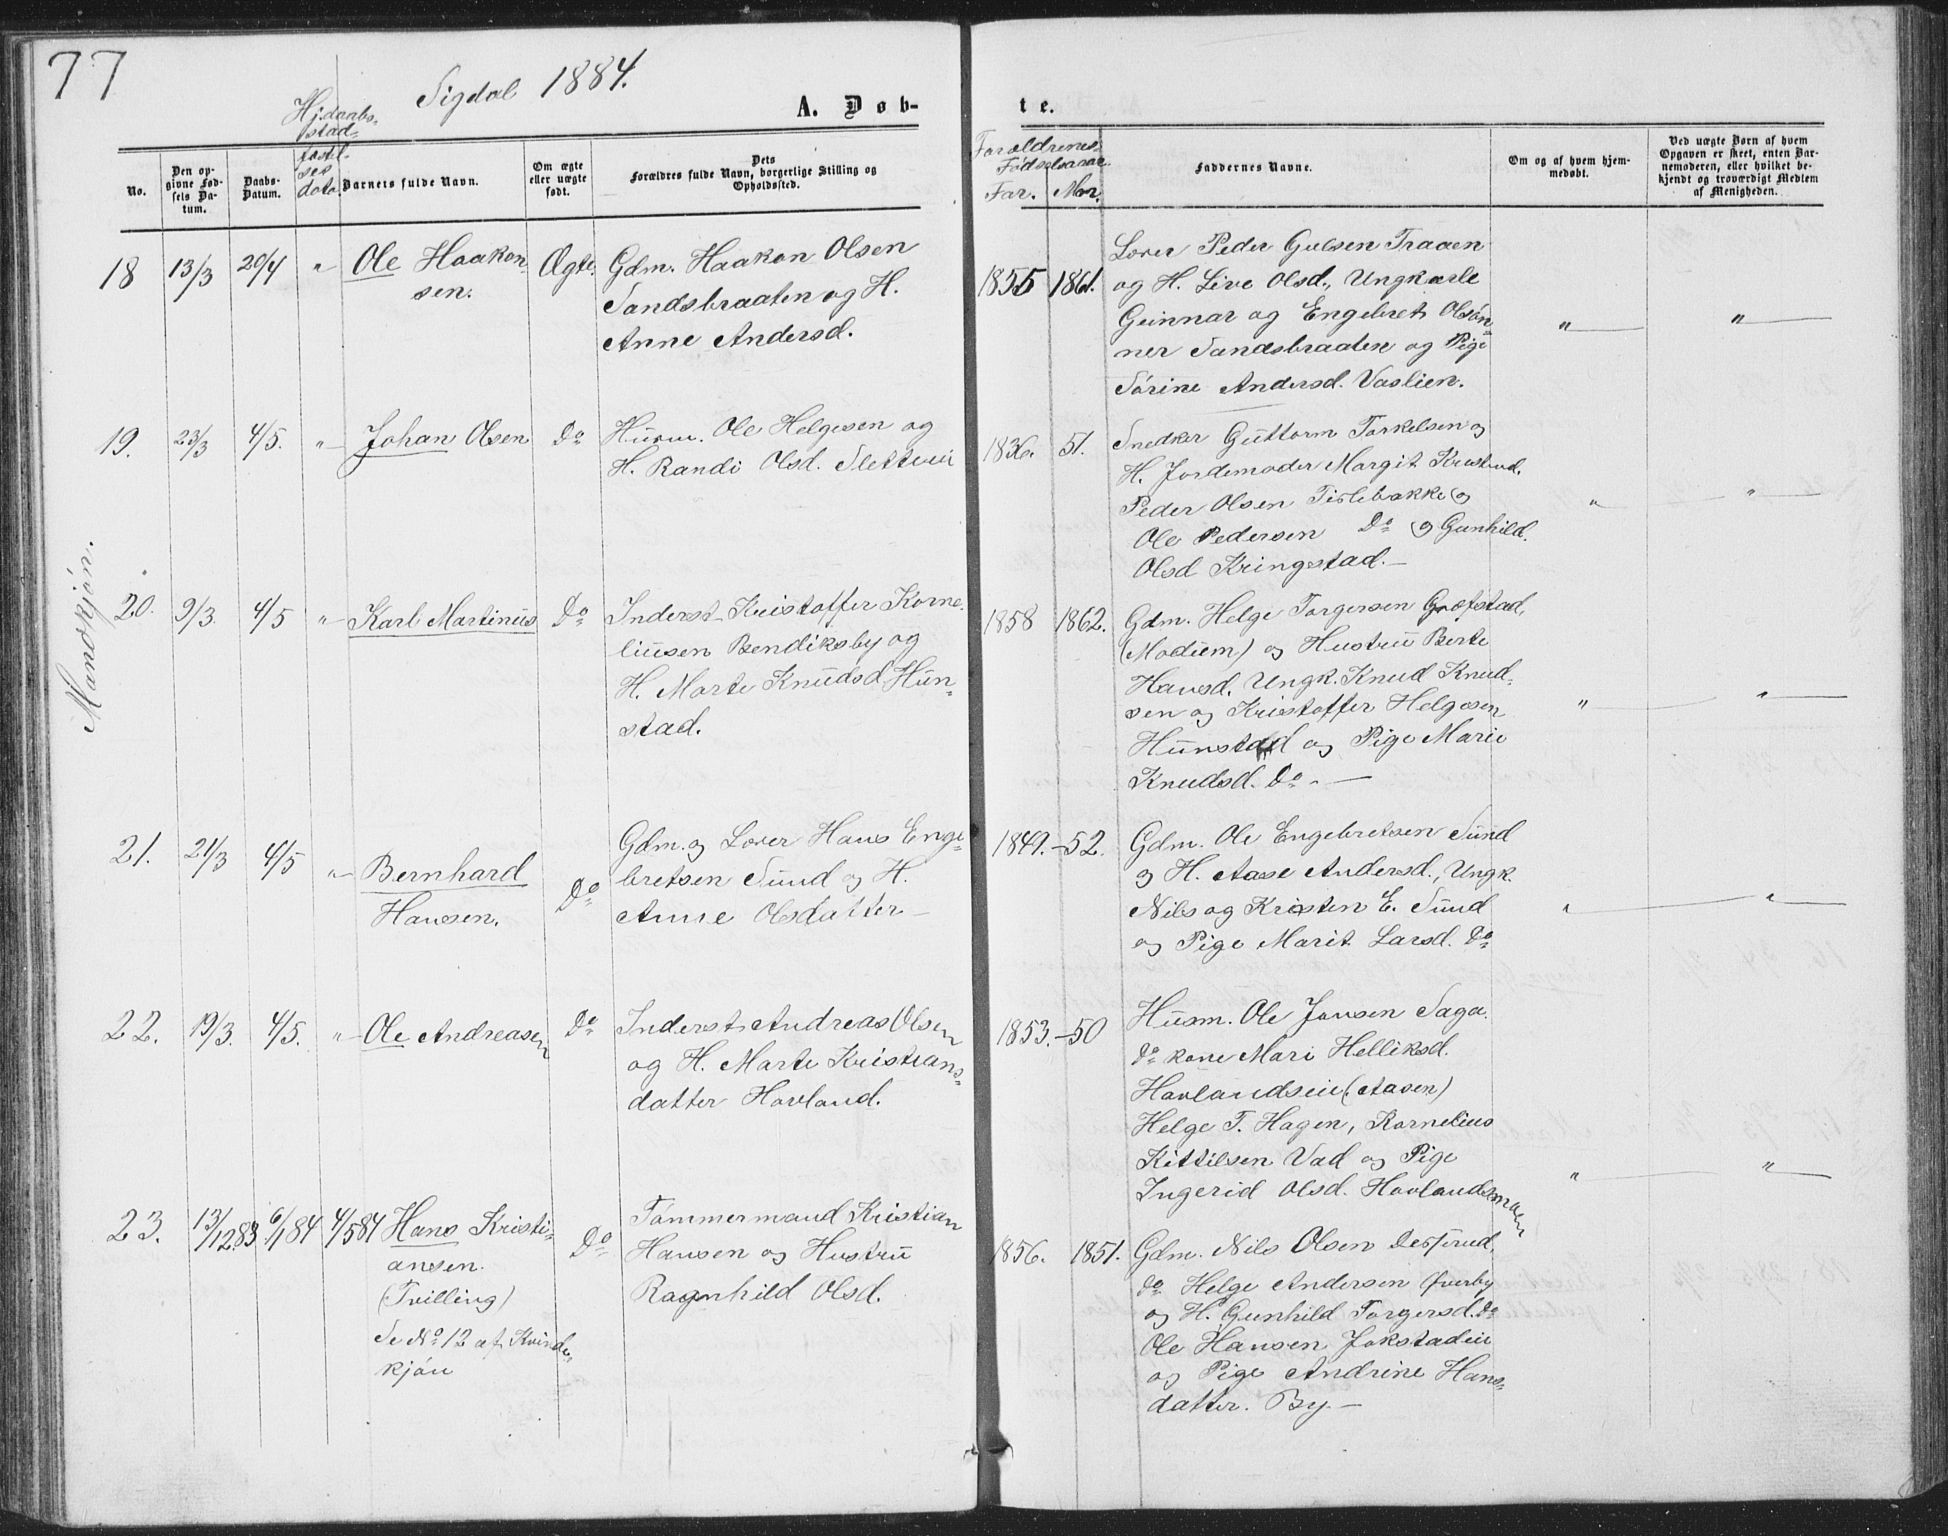 77
Sigdal 1884.
A. Døb-
te.
Hj.daabs-
stad-
fæstel-
ses
dato.
Forældrenes
Fødselsaar
Far. Mor.
No.
Den op-
givne Fød-
sels Da-
tum.
Daabs-
Datum.
Barnets fulde Navn.
Om ægte
eller uægte
født.
Dets
Forældres fulde Navn, borgerlige Stilling og
Opholdssted.
Faddernes Navne.
Om og af hvem hjem-
medøbt.
Ved uægte Børn af hvem
Opgaven er skeet, enten Bar-
nemoderen, eller hvilket be-
kjendt og troværdigt Medlem
af Menigheden.
Mandkjøn.
18 13/3 20/4 " Ole Haakon-
sen.
Ægte.
Gdm. Haakon Olsen
Sandsbraaten og H.
Anne Andersd.
1855 1861.
Lærer Peder Gulsen Traaen
og H. Live Olsd., Ungkarle
Gunnar og Engebret Olsøn-
ner Sandsbraaten og Pige
Sørine Andersd. Vaslien.
" "
19. 23/3 4/5. " Johan Olsen Do
Husm. Ole Helgesen og
H. Randi Olsd. Sletteen
1836. 51.
Snedker Guttorm Torkelsen og
H. Jordemoder Margit
Peder Olsen Tislebakke og
Ole Pedersen Do og Gunhild.
Olsd Kringstad.
" "
20. 9/3 4/5 " Karl Martinus Do
Inderst Kristoffer Korne-
liusen Bendiksby og
H. Marte Knudsd Hun-
stad.
1858 1862.
Gdm. Helge Torgersen Græfstad,
(Modum) og Hustru Berte
Hansd. Ungk. Knud Knud-
sen og Kristoffer Helgesen
Hunstad og Pige Marie
Knudsd. Do
" "
21. 21/3 4/5 " Bernhard
Hansen.
Do
Gdm. og Lærer Hans Enge-
bretsen Sund og H.
Anne Olsdatter
1849.-52.
Gdm. Ole Engebretsen Sund
og H. Aase Andersd., Ungk.
Nils og Kristen E. Sund
og Pige Marit Larsd. Do
" "
22. 19/3. 4/5. " Ole Andreasen Do
Inderst Andreas Olsen
og H. Marte Kristians-
datter Hovland.
1853.-50
Husm. Ole Jonsen Saga.
Do kone Mari Helliksd.
Hovlandseie (Aasen)
Helge T. Hagen, Kornelius
Kittilsen Vad og Pige
Ingerid Olsd. Hovlandsmoen
" "
23. 13/12 83 6/1 84 4/5 84 Hans Kristi-
ansen.
(Tvilling)
Se No 12 af Kvinde-
kjøn
Do
Tømmermand Kristian
Hansen og Hustru
Ragnhild Olsd.
1856. 1851.
Gdm. Nils Olsen
Do Helge Andersen Øverby
og H. Gunhild Torgersd. Do
Ole Hansen Jokstadeie
og Pige Andrine Hans-
datter. By.